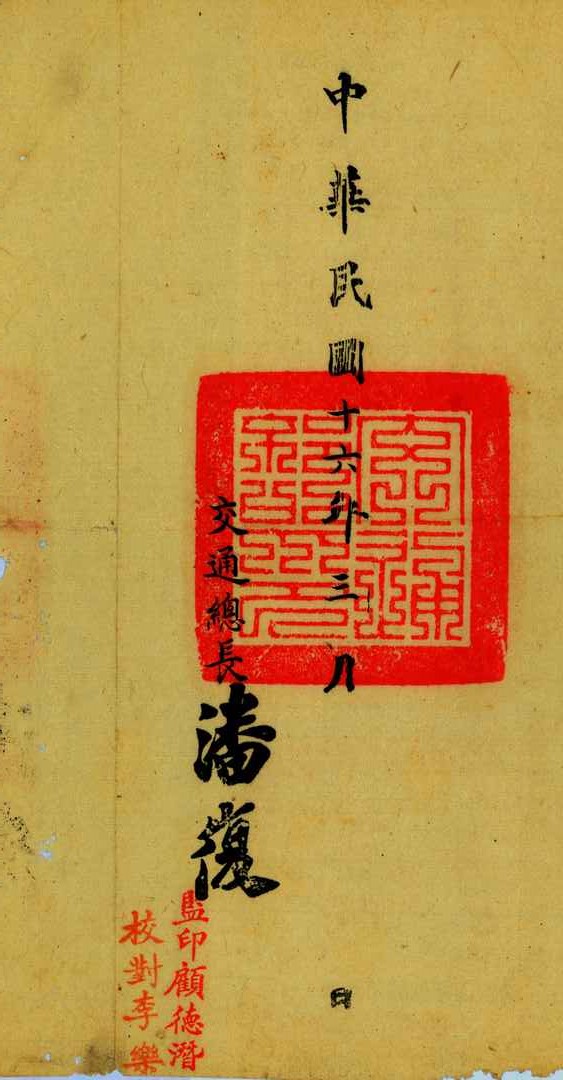 中華民國十六年三月 日
交通總長潘復
監印顧德潛
校對李樂